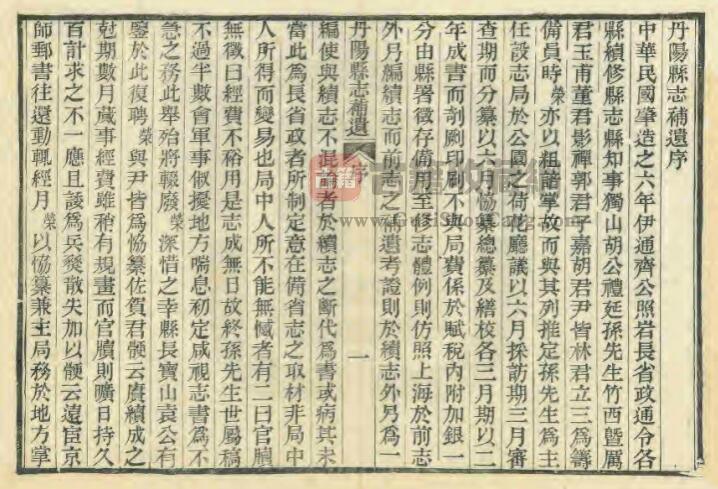 丹陽縣志補遺序
中華民國肇造之六年伊通齊公照岩長省政通令各
縣續修縣志縣知事獨山胡公禮延孫先生竹西暨厲
君玉甫董君影禪郭君子嘉胡君尹皆林君立三爲籌
備員時榮亦以粗諳掌故而與其列推定孫先生爲主
任設志局於公園之荷花廳議以六月採訪期三月審
查期而分纂以六月協纂總纂及繕校各三月期以二
年成書而剞劂印刷不與局費係於賦稅內附加銀一
分由縣署徵存備用至修志體例則仿照上海於前志
外另編續志而前志之補遺考證則於續志外另爲一
丹陽縣志補遺 序 一
編使與續志不混論者於續志之斷代爲書或病其未
當此爲長省政者所制定意在備省志之取材非局中
人所得而變易也局中人所不能無憾者有二曰官牘
無徵曰經費不裕用是志成無日故終孫先生世屬稿
不過半數會軍事俶擾地方喘息初定咸視志書爲不
急之務此舉殆將輟廢榮深惜之幸縣長寶山袁公有
鑒於此復聘榮與尹皆爲協纂佐賀君骾云賡續成之
尅期數月蕆事經費雖稍有規畫而官牘則曠日持久
百計求之不一應且諉爲兵燹散失加以骾云遠宦京
師郵書往還動輒經月榮以協纂兼主局務於地方掌
古籍
www.GuJiShouCang.com